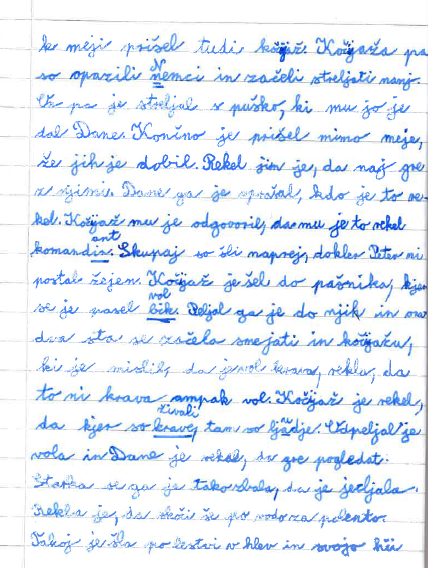 k meji prišel tudi kočijaž. Kočijaža pa
so opazili Nemci in začeli streljati nanj.
On pa je streljal s puško, ki mu jo je
dal Dane. Konino je prišel mimo meje,
že jih je dobil. Rekel jim je, da naj gre
z njimi. Dane ga je vprašal, kdo je to re-
kel. Kočijaž mu je odgovoril, da mu je to rekel
komandant. Skupaj so šli naprej, dokler Peter ni
postal žejen. Kočijaž je šel do pašnika, kjer
se je pasel vol bik. Peljal ga je do njih in ona
dva sta se začela smejati in kočijažu,
ki je mislil, da je vol krava, rekla, da
to ni krava ampak vol. Kočijaž je rekel,
da kjer so živali krave, tam so ljudje. Odpeljal je
vola in Dane je rekel, da gre pogledat.
Starka se ga je tako zbala, da je jecljala.
Rekla je, da skoči še po vodo za polento.
Takoj je šla po lestvi v hlev in svojo hči